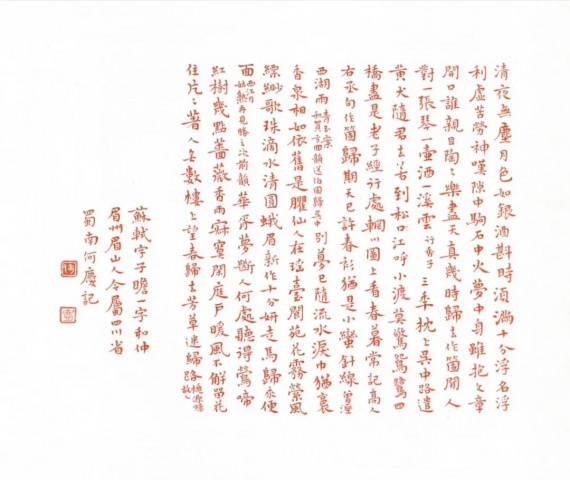 清夜無塵月色如銀酒斟時須滿十分浮名浮
利虛苦勞神嘆隙中駒石中火夢中身雖抱文章
開口誰親且陶〻樂盡天真幾時歸去作箇閒人
對一張琴一壺酒一溪雲 行香子 三年枕上吳中路遣
黃犬隨君去若到松江呼小渡莫驚鴛鷺四
橋盡是老子經行處輞川圖上看春暮常記高人
右丞句作箇歸期天已許春衫猶是小蠻針線曾溼
西湖雨 青玉案 和賀方回韻送伯固歸吳中 別夢已隨流水淚巾猶裛
香泉相如依舊是臞仙人在瑤臺閬苑花霧縈風
縹緲歌珠滴水清圓蛾眉新作十分妍走馬歸來便
面 西江月 姑熟再見勝之次前韻 華胥夢斷人何處聽得鶯啼
紅樹幾點薔薇香雨寂寞閒庭戶暖風不解留花
住片〻著人無數樓上望春歸去芳草迷歸路 桃源憶故人
蘇軾字子瞻一字和仲
眉州眉山人今屬四川省
蜀南何慶記